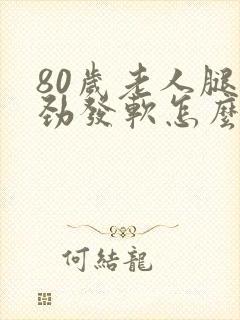 80歲老人腿
勁發軟怎麼
何結龍